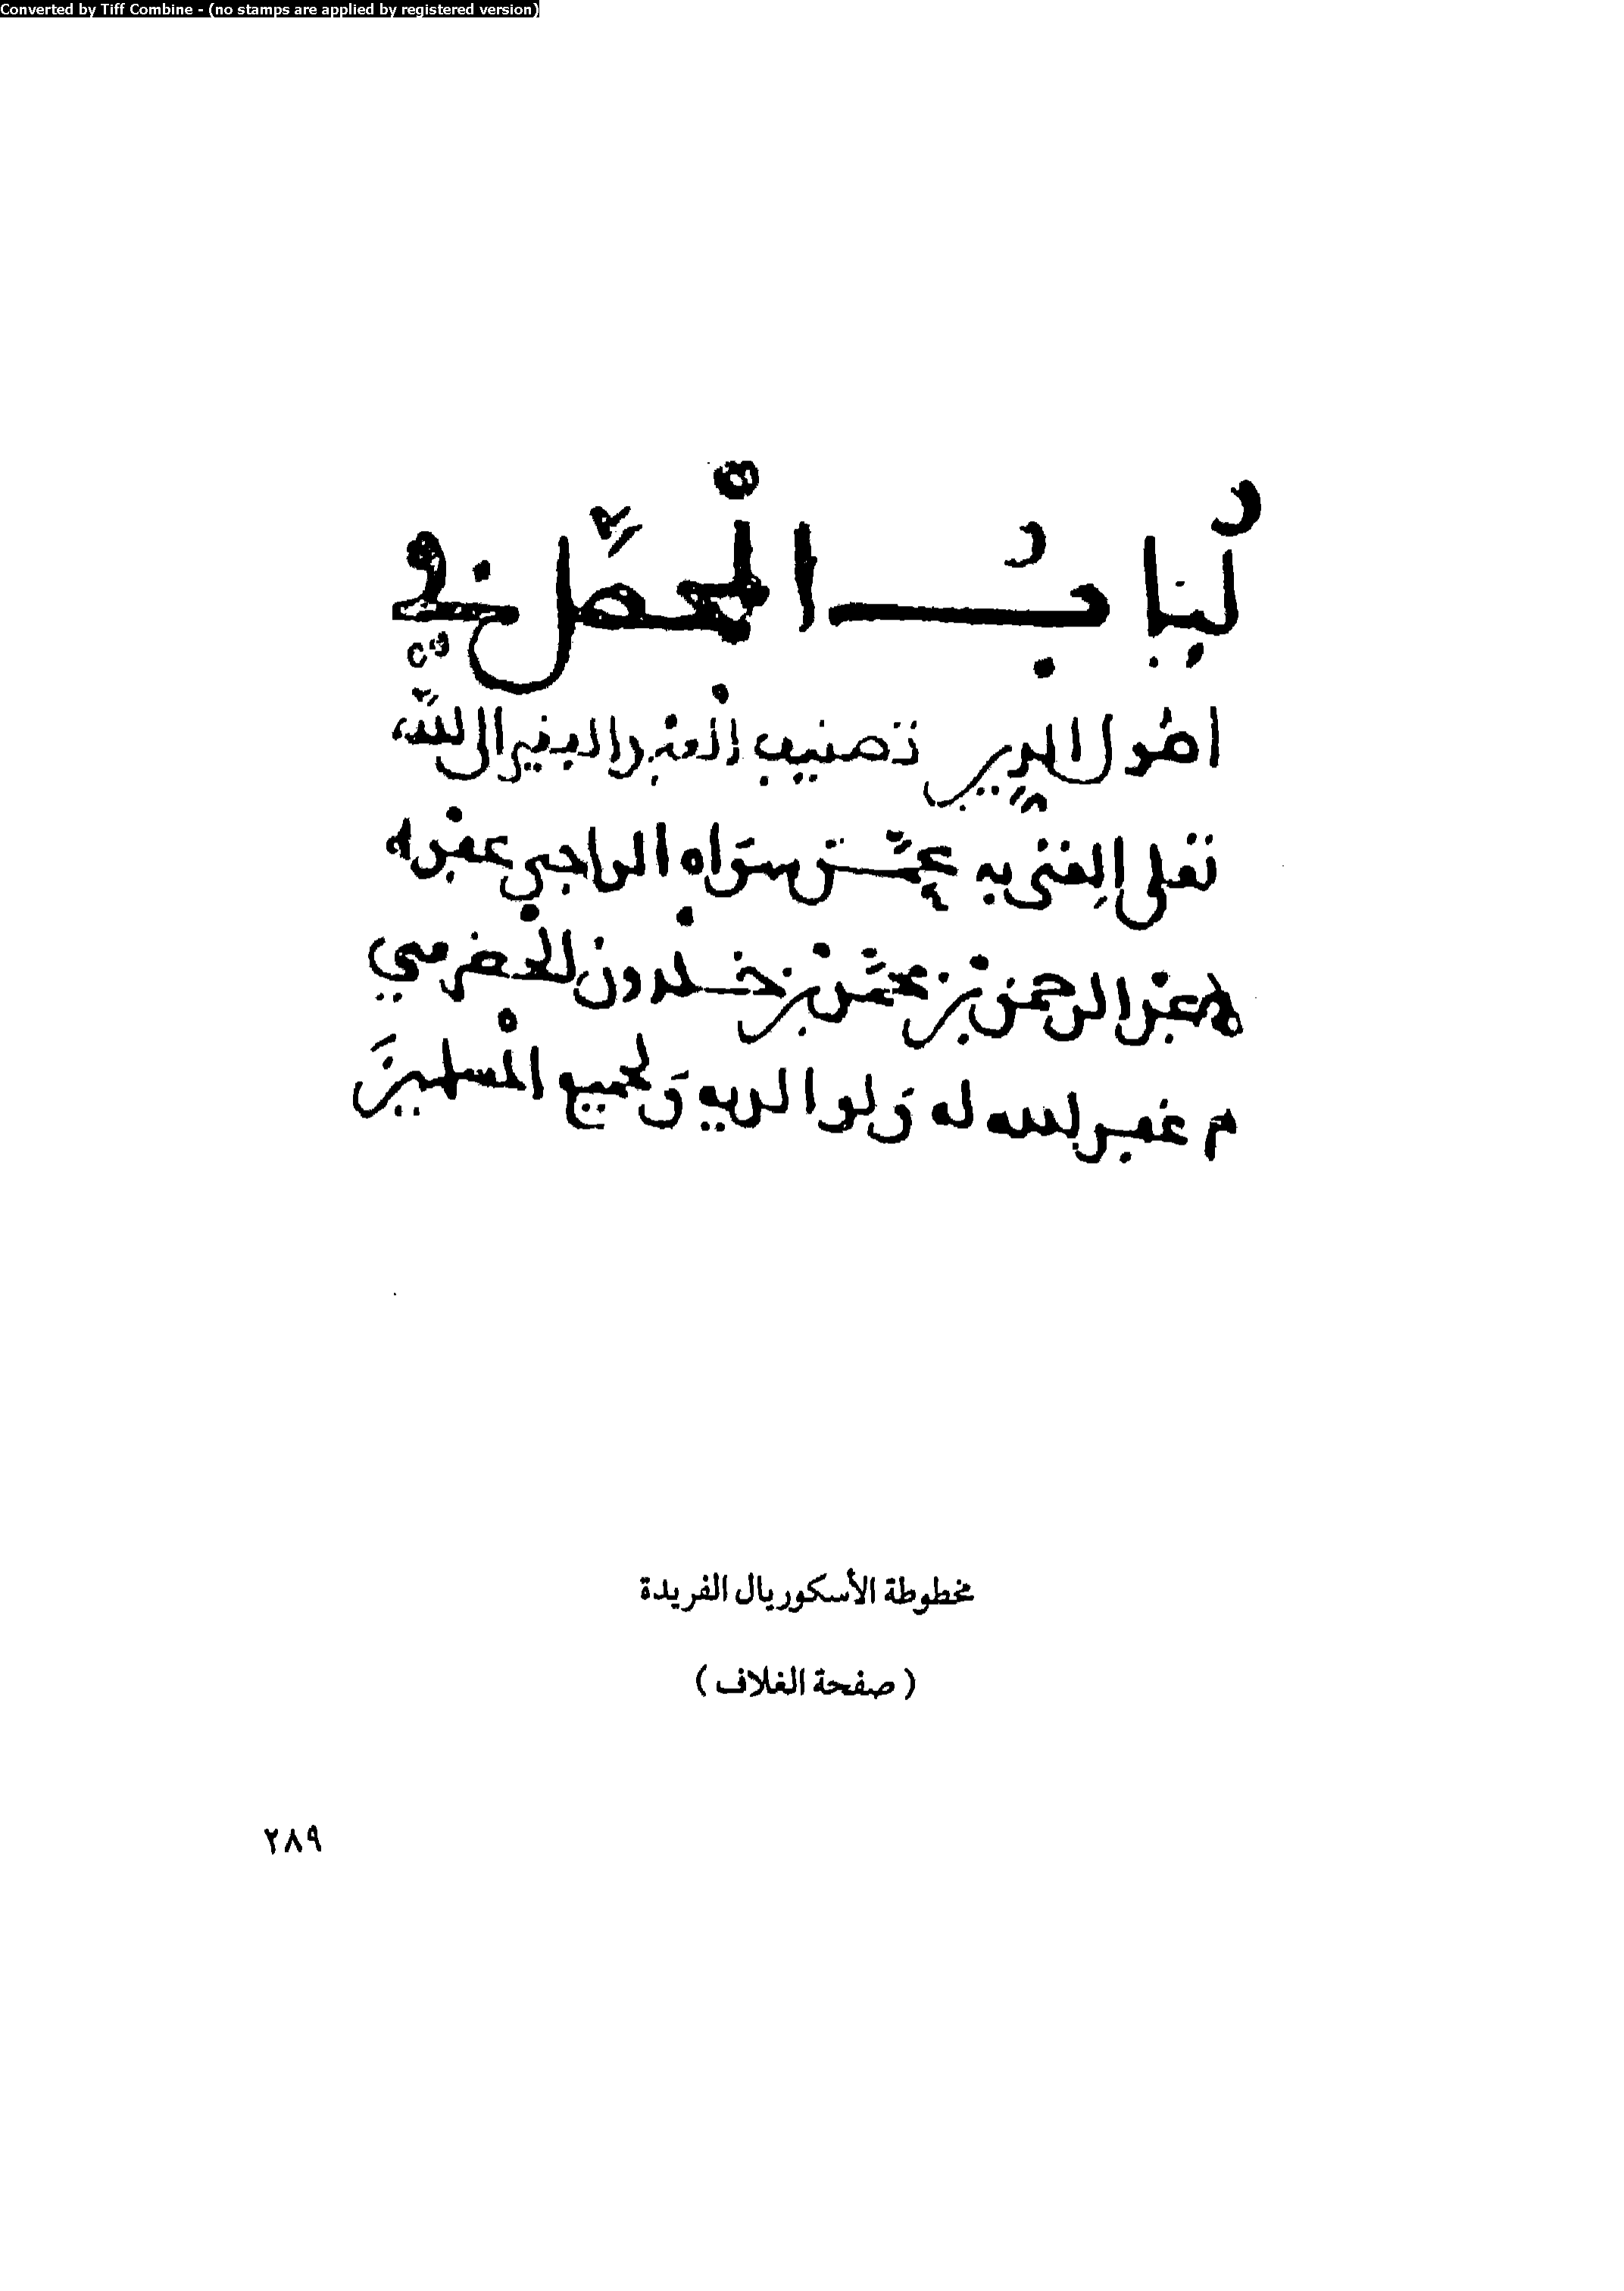 Converted by Tiff Combine - (no stamps are applied by registered version)
كتاب المحصل في
اصول الدين تصنيف العبد الفقير الى الله
تعلى الغني به عمن سواه الراجي عفوه
عبد الرحمن بن محمد بن خلدون الحضرمي
غفر الله له ولوالديه ولجميع المسلمين
مخطوطة الأسكوريال الفريدة
( صفحة الغلاف )
٢٨٩